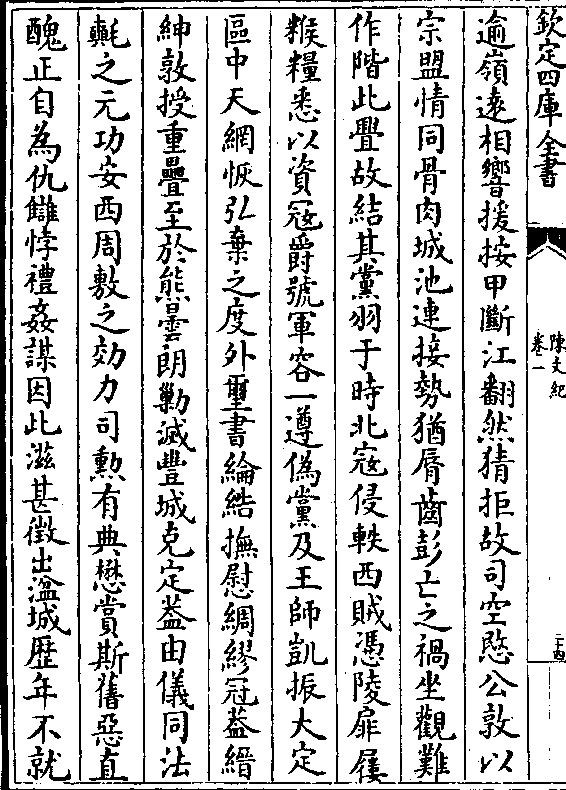 欽定四庫全書
陳文紀
卷一
二十四
逾嶺遠相響援按甲斷江翻然猜拒故司空愍公敦以
宗盟情同骨肉城池連接勢猶脣齒彭亡之禍坐觀難
作階此舋故結其黨羽于時北寇侵軼西賊憑陵扉屨
糇糧悉以資寇爵號軍容一遵偽黨及王師凱振大定
區中天網恢弘棄之度外璽書綸綍撫慰綢繆冠葢縉
紳敦授重疊至於熊曇朗勦滅豐城克定葢由儀同法
𣰰之元功安西周敷之効力司勲有典懋賞斯舊惡直
醜正自為仇讎悖禮姦謀因此滋甚徴出湓城歴年不就